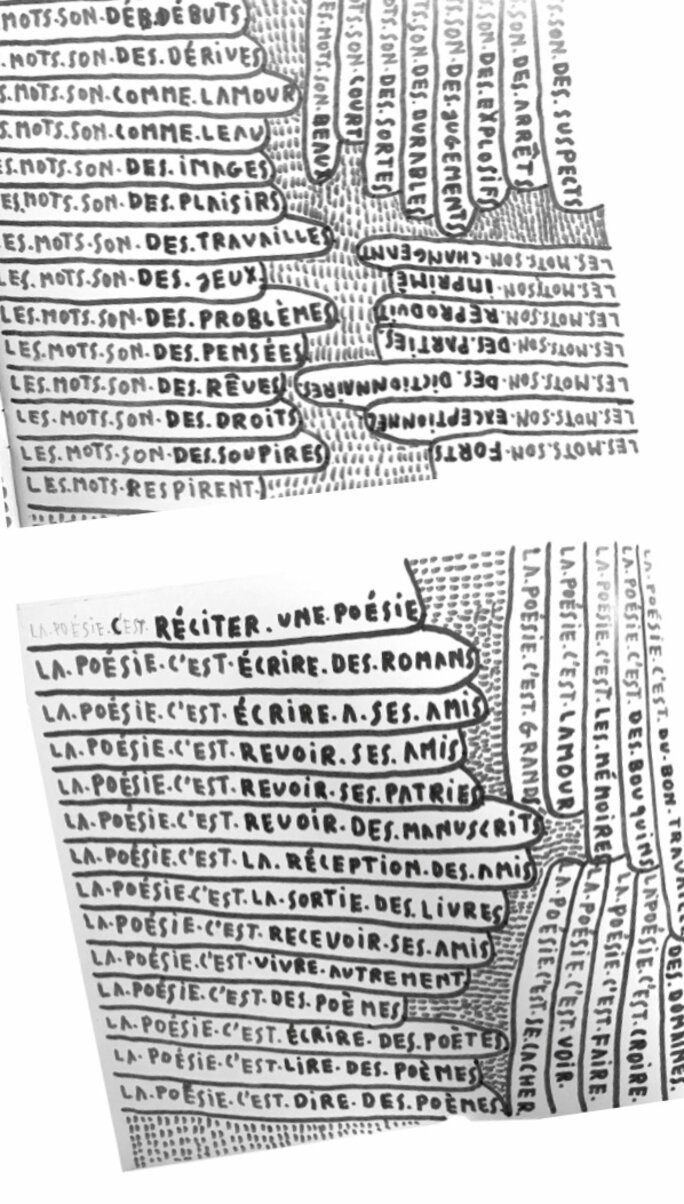 MOTS.SON.DÉB.DÉBUTS
.MOTS.SON.DES.DÉRIVES
S.MOTS.SON.COMME.LAMOUR
S.MOTS.SON.COMME.LEAU
ES.MOTS.SON.DES.IMAGES
ES.MOTS.SON.DES.PLAISIRS
ES.MOTS.SON.DES.TRAVAILLES
LES.MOTS.SON.DES.JEUX
LES.MOTS.SON.DES.PROBLÈMES
LES.MOTS.SON.DES.PENSÉES
LES.MOTS.SON.DES.RÊVES
LES.MOTS.SON.DES.DROITS
LES.MOTS.SON.DES.SOUPIRES
LES.MOTS.RESPIRENT
ES.MOTS.SON.BEAUX
TS.SON.COURT
SON.DES.SORTES
TS.SON.DES.DURABLES
SON.DES.JUGEMENTS
SON.DES.EXPLOSIFS
SON.DES.ARRÊTS
SON.DES.SUSPECTS
LES.MOTS.SON.CHANGEANT
LES.MOTS.SON.IMPRIMÉ
LES.MOTS.SON.REPRODUIT
LES.MOTS.SON.DES.PARTIES
LES.MOTS.SON.DES.DICTIONNAIRES
LES.MOTS.SON.EXCEPTIONNEL
LES.MOTS.SON.FORTS
LA.POÉSIE.C'EST.RÉCITER.UNE.POÉSIE
LA.POÉSIE.C'EST.ÉCRIRE.DES.ROMANS
LA.POÉSIE.C'EST.ÉCRIRE.A.SES.AMIS
LA.POÉSIE.C'EST.REVOIR.SES.AMIS
LA.POÉSIE.C'EST.REVOIR.SES.PATRIES
LA.POÉSIE.C'EST.REVOIR.DES.MANUSCRITS
LA.POÉSIE.C'EST.LA.RÉCEPTION.DES.AMIS
LA.POÉSIE.C'EST.LA.SORTIE.DES.LIVRES
LA.POÉSIE.C'EST.RECEVOIR.SES.AMIS
LA.POÉSIE.C'EST.VIVRE.AUTREMENT
LA.POÉSIE.C'EST.DES.POÈMES
LA.POÉSIE.C'EST.ÉCRIRE.DES.POÈTES
LA.POÉSIE.C'EST.LIRE.DES.POÈMES
LA.POÉSIE.C'EST.DIRE.DES.POÈMES
LA.POÉSIE.C'EST.GRAND
LA.POÉSIE.C'EST.LAMOUR
LA.POÉSIE.C'EST.LES.MÉMOIRE
LA.POÉSIE.C'EST.DES.BOUQUINS
LA.POÉSIE.C'EST.DU.BON.TRAVAIL
LA.POÉSIE.C'EST.SE.CACHER
LA.POÉSIE.C'EST.VOIR.
LA.POÉSIE.C'EST.FAIRE.
LA.POÉSIE.C'EST.CROIRE.
DES.DOMAINES.